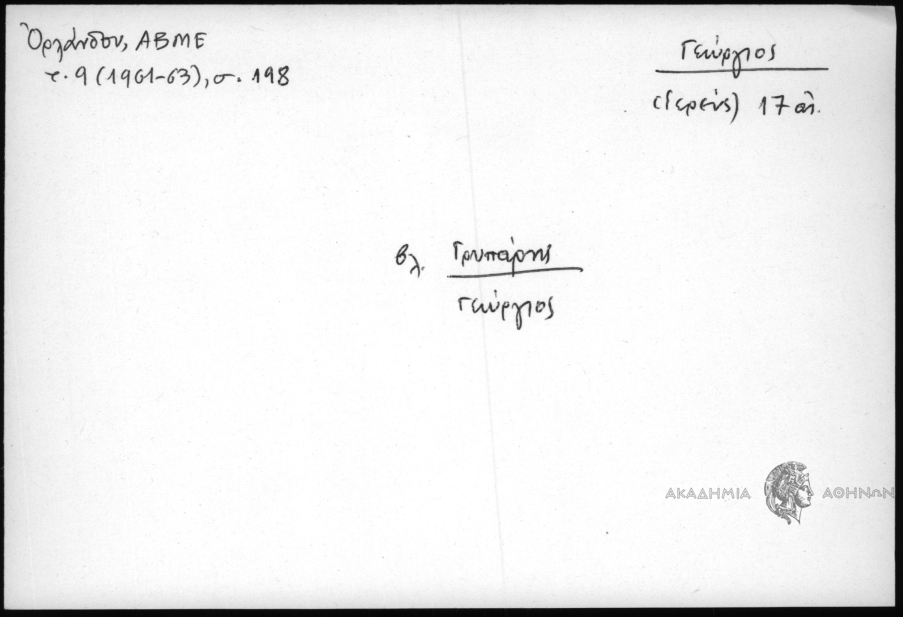 Ὀρλάνδου, ΑΒΜΕ
τ. 9 (1961-63), σ. 198
Γεώργιος
(Ἱερεύς) 17 αἰ.
βλ. Γρυπάρης
Γεώργιος
ΑΚΑΔΗΜΙΑ ΑΘΗΝΩΝ